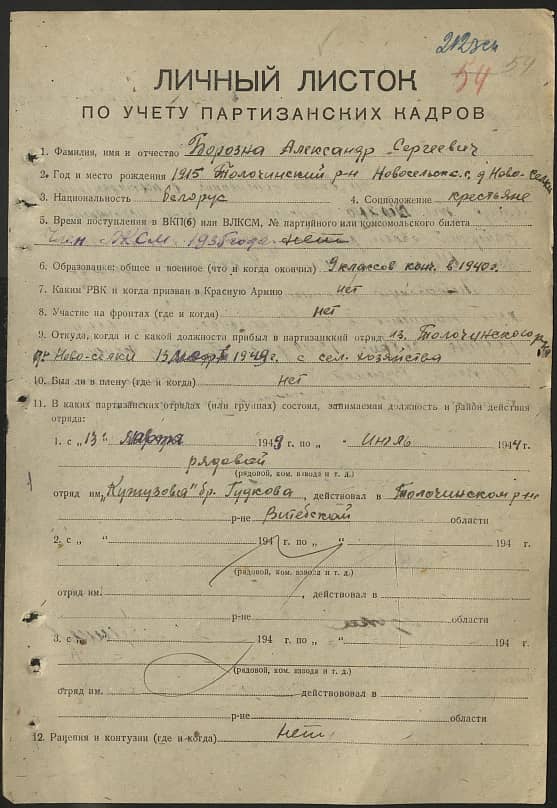 54 54
ЛИЧНЫЙ ЛИСТОК
ПО УЧЕТУ ПАРТИЗАНСКИХ КАДРОВ
1. Фамилия, имя и отчество Борозна Александр Сергеевич
2. Год и место рождения 1915 Толочинский р-н Новосельск. с. д. Ново-Селки
3. Национальность белорус 4. Соцположение крестьяне
5. Время поступления в ВКП(б) или ВЛКСМ, № партийного или комсомольского билета
Член ЛКСМ 1935 года нет
6. Образование: общее и военное (что и когда окончил) 9 классов в 1940 г.
7. Каким РВК и когда призван в Красную Армию нет
8. Участие на фронтах (где и когда) нет
9. Откуда, когда и с какой должности прибыл в партизанский отряд 13. Толочинского р-на
д. Ново-селки 13 1943 г. с сел. хозяйства
10. Был ли в плену (где и когда) нет
11. В каких партизанских отрядах (или группах) состоял, занимаемая должность и район действия
отряда:
1. с „13" 1943 г. по „ - июль 1944 г.
рядовой
(рядовой, ком. взвода и т. д.)
отряд им. „Кутузова" бр. Гудкова, действовал в Толочинском р-н
р-не Витебской области
2. с „ " 194 г. по „ " 194 г.
(рядовой, ком. взвода и т. д.)
отряд им. , действовал в
р-не области
3. с „ " 194 г. по „ " 194 г.
(рядовой, ком. взвода и т. д.)
отряд им. действововал в
р-не области
12. Ранения и контузии (где и когда) нет